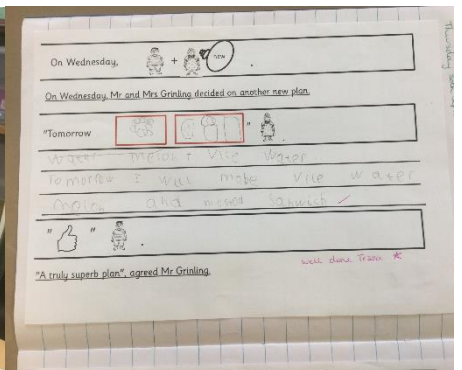 On Wednesday, + new .
On Wednesday, Mr and Mrs Grinling decided on another new plan.
"Tomorrow " .
water melon + Vile Water
Tomorrow I will make Vile water
melon and Sandwich ✓
" " .
well done
"A truly superb plan", agreed Mr Grinling.